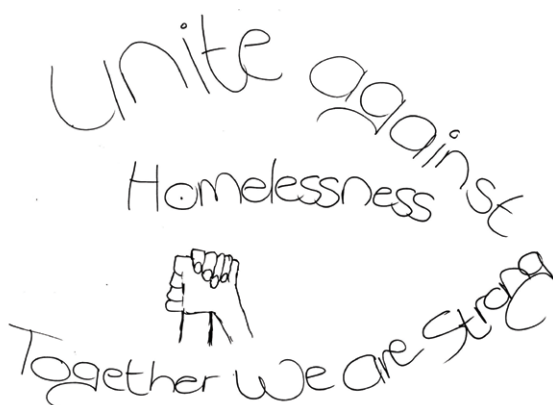 unite against
Homelessness
Together we are Strong